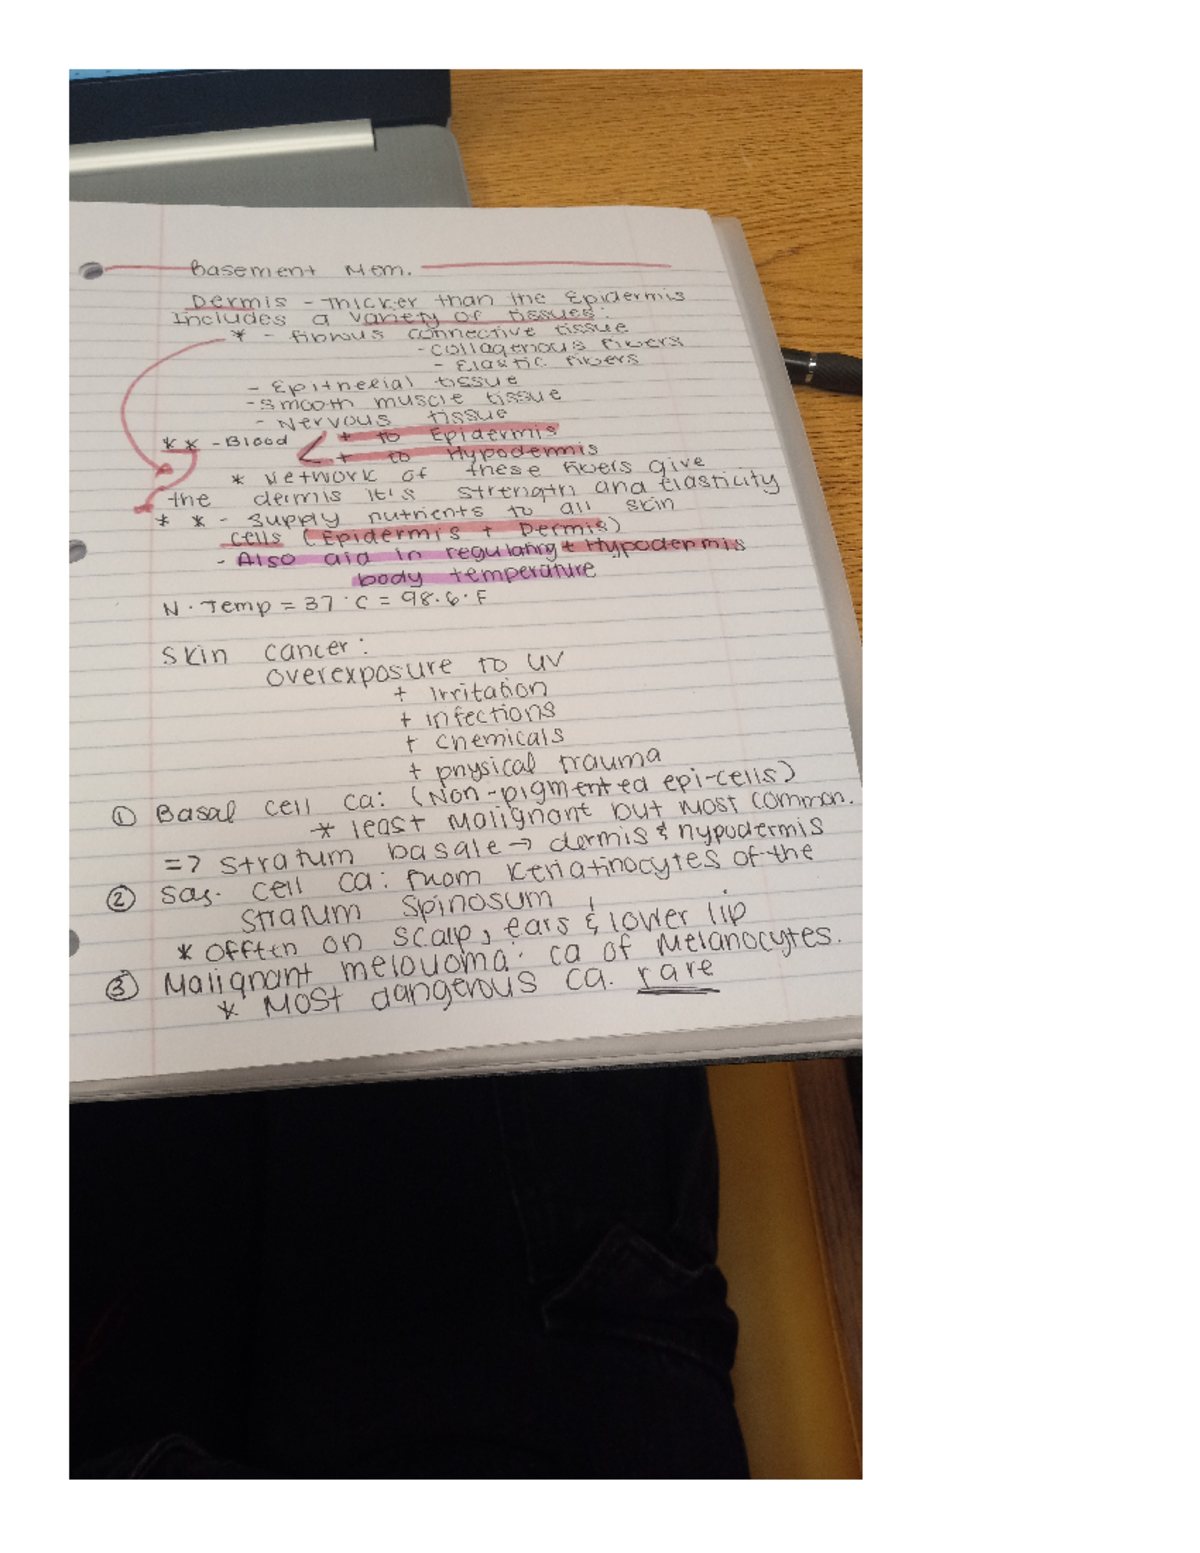 Basement Mem.
Dermis - Thicker than the Epidermis
Includes a variety of tissues:
* - fibrous connective tissue
- collagenous fibers
- Elastic fibers
- Epithelial tissue
- Smooth muscle tissue
- Nervous tissue
* * - Blood < + to Epidermis
+ to Hypodermis
* Network of these fibers give
the dermis it's strength and Elasticity
* * - Supply nutrients to all skin
cells (Epidermis + Dermis)
- Also aid in regulating + Hypodermis
body temperature
N. Temp = 37°C = 98.6°F
Skin cancer:
overexposure to UV
+ Irritation
+ infections
+ chemicals
+ physical trauma
① Basal cell ca: (Non-pigmented epi-cells)
* least Malignant but most common.
=> stratum basale → dermis & hypodermis
② Sqs. cell ca: from Keriatinocytes of the
stratum spinosum
* Offten on scalp, ears & lower lip
③ Malignant melouoma: ca of Melanocytes.
* Most dangerous ca. rare